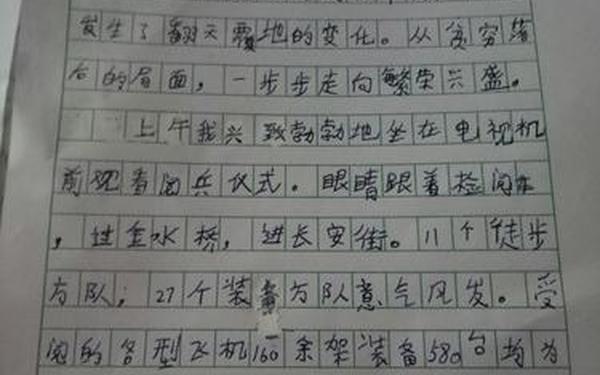 发生了翻天覆地的变化。从贫穷落
后的局面，一步步走向繁荣兴盛。
上午我兴致勃勃地坐在电视机
前观看阅兵仪式。眼睛跟着检阅车
，过金水桥，进长安街。11个徒步
方队；27个装备方队意气风发。受
阅的各型飞机160余架装备580台均为